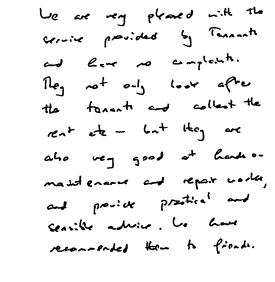 We are very pleased with the
service provided by Tennants
and have no complaints.
They not only look after
the tenants and collect the
rent etc — but they are
also very good at hands on
maintenance and repair works,
and provide practical and
sensible advice. We have
recommended them to friends.